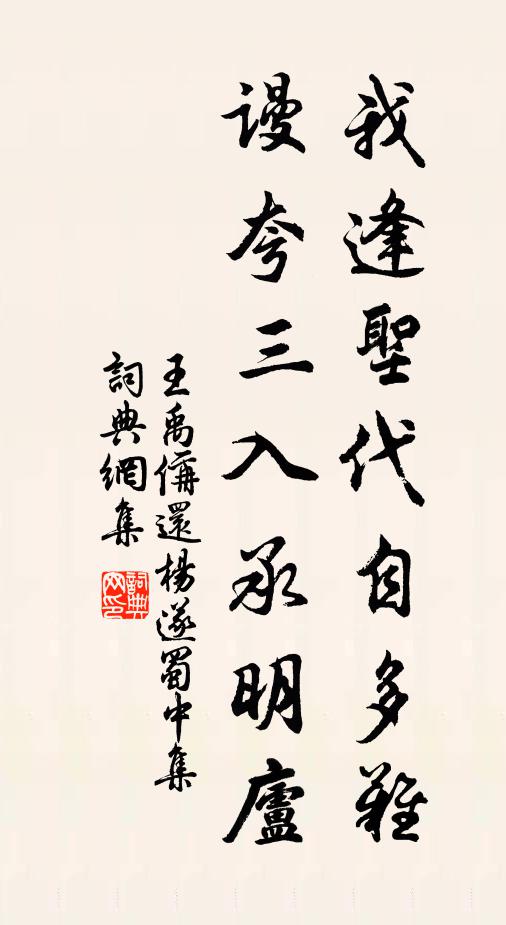 我逢聖代自多難
謾夸三入承明廬
王禹偁還楊遂蜀中集
詞典網集
詞典网印